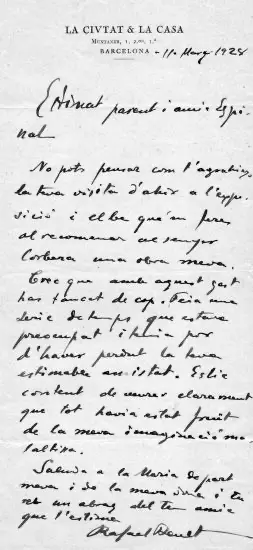 LA CIVTAT & LA CASA
MUNTANER, 1, 2.ON, 1.ª
BARCELONA - 11 - Març 1928
Estimat parent i amic Espi-
nal
No pots pensar com t'agraeixo
la teva visita d'ahir a l'expo-
sició i el be que'm feres
al recomanar al senyor
Corbera una obra meva.
Crec que amb aquest gest
has tancat de cop. Feia una
serie de temps que estava
preocupat i tenia por
d'haver perdut la teva
estimable amistat. Estic
content de veure clarament
que tot havia estat fruit
de la meva imaginació ma-
laltissa.
Saluda a la Maria de part
meva i de la meva dona i tu
rep un abraç del teu amic
que t'estima
Rafael Benet